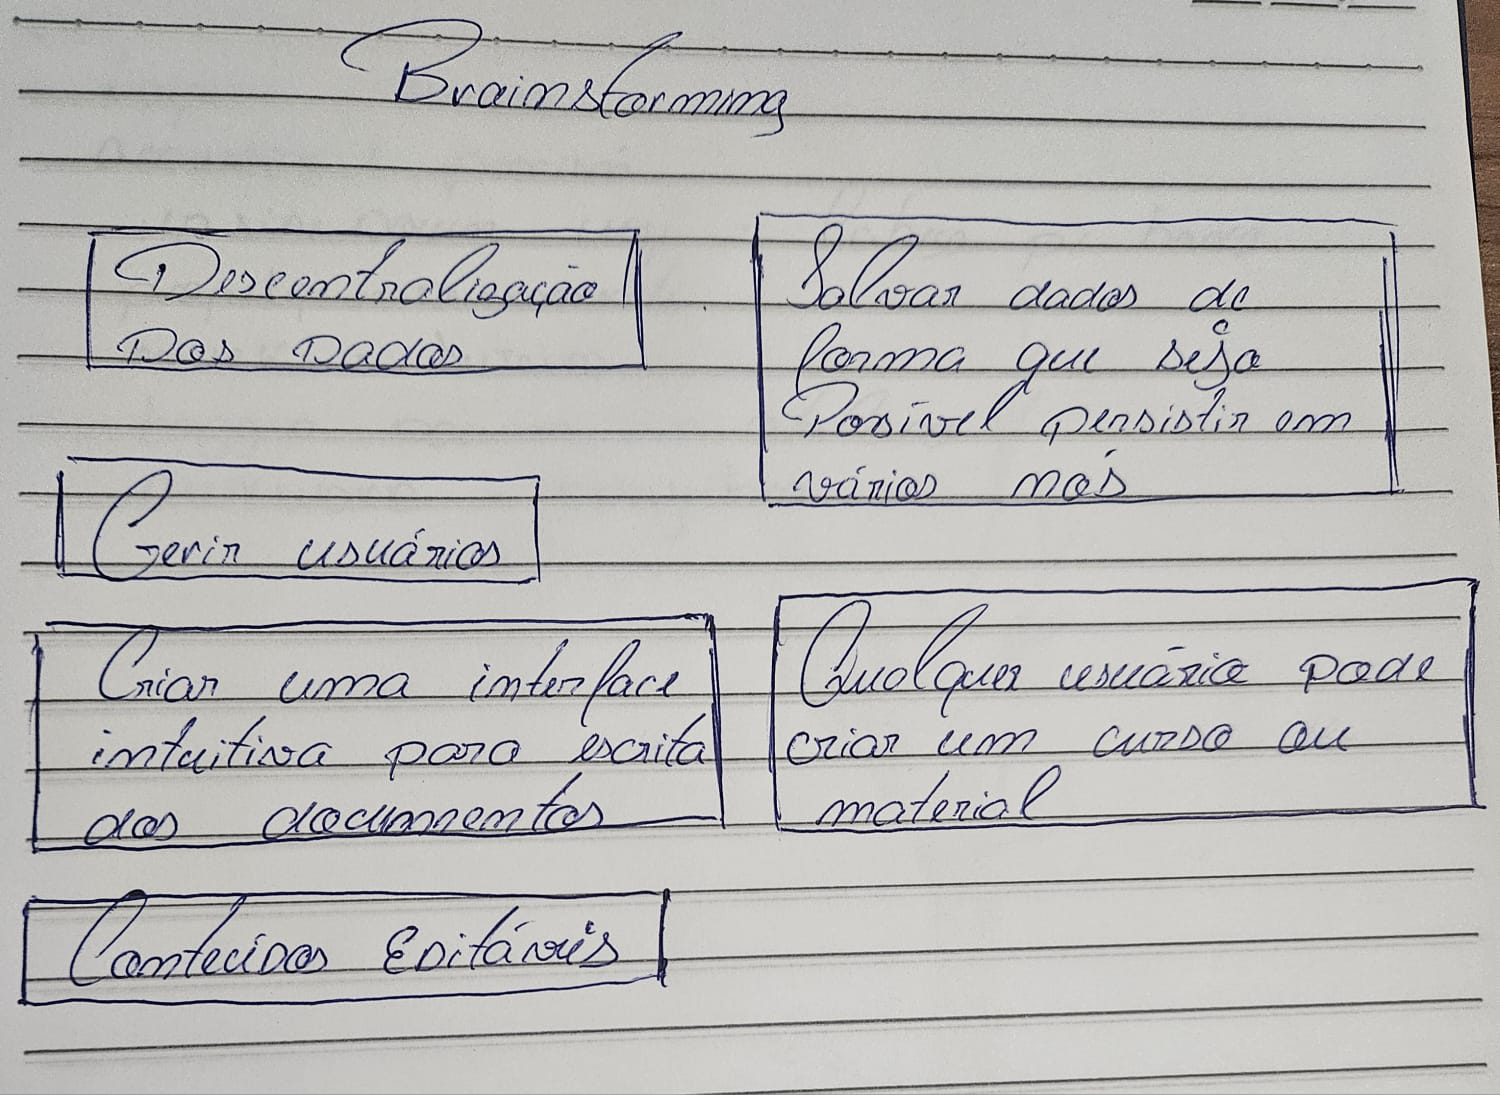 Brainstorming
Descentralização
Dos Dados
Salvar dados de
forma que seja
Possível persistir em
vários nós
Gerir usuários
Criar uma interface
intuitiva para escrita
dos documentos
Qualquer usuário pode
criar um curso ou
material
Conteúdos Editáveis